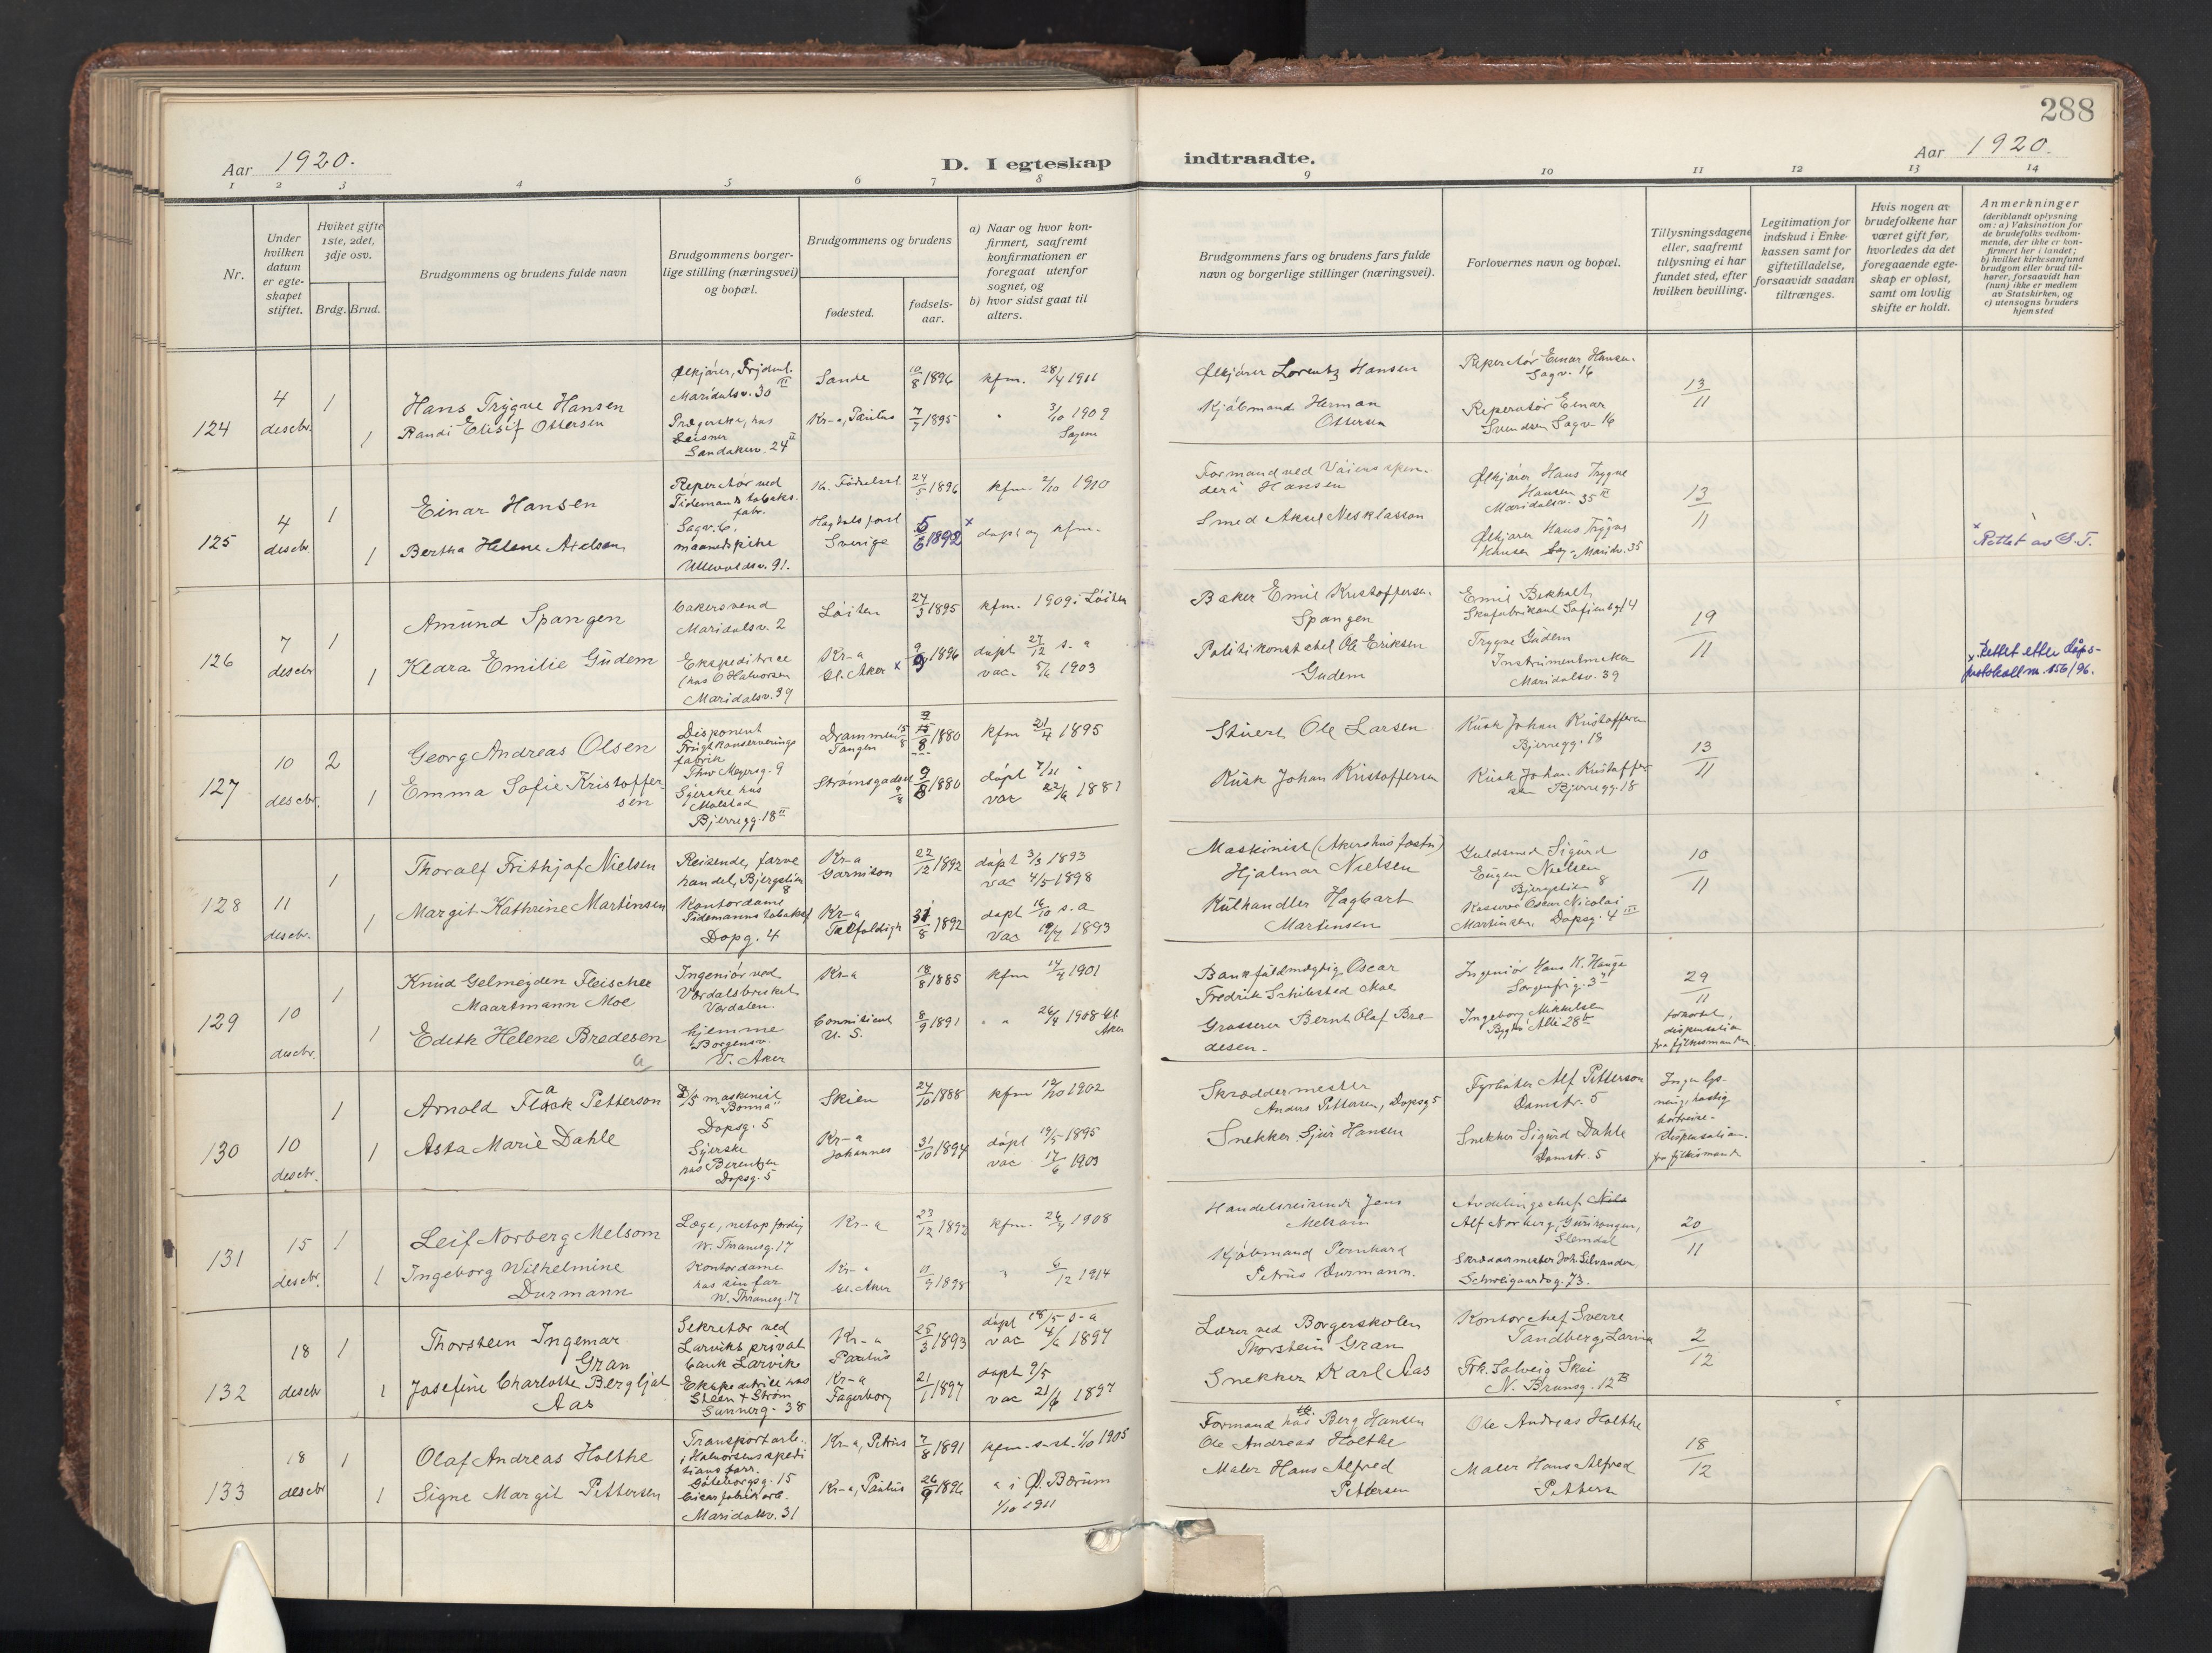 288
Aar 1920.
D. I egteskap indtraadte.
Aar 1920.
1 2 3 4 5 6 7 8 9 10 11 12 13 14
Nr.
Under
hvilken
datum
er egte-
skapet
stiftet.
Hviket gifte
1ste, 2det,
3dje osv.
Brdg. Brud.
Brudgommens og brudens fulde navn
Brudgommens borger-
lige stilling (næringsvei)
og bopæl.
Brudgommens og brudens
fødested.
fødsels-
aar.
a) Naar og hvor kon-
firmert, saafremt
konfirmationen er
foregaat utenfor
sognet, og
b) hvor sidst gaat til
alters.
Brudgommens fars og brudens fars fulde
navn og borgerlige stillinger (næringsvei).
Forlovernes navn og bopæl.
Tillysningsdagene
eller, saafremt
tillysning ei har
fundet sted, efter
hvilken bevilling.
Legitimation for
indskud i Enke-
kassen samt for
giftetilladelse,
forsaavidt saadan
tiltrænges.
Hvis nogen av
brudefolkene har
været gift før,
hvorledes da det
foregaaende egte-
skap er opløst,
samt om lovlig
skifte er holdt.
Anmerkninger
(deriblandt oplysning
om: a) Vaksination for
de brudefolks vedkom-
mende, der ikke er kon-
firmert her i landet;
b) hvilket kirkesamfund
brudgom eller brud til-
hører, forsaavidt han
(hun) ikke er medlem
av Statskirken, og
c) utensogns bruders
hjemsted
124
4
descbr.
1
1
Hans Trygve Hansen
Randi Elisif Ottersen
Ølkjører, Frydenl.
Maridalsv. 30 II
Sandakerv. 24 II
Sande
Kr-a, Paulus
10/8 1896
7/7 1895
kfm. 28/4 1911
" 3/10 1909
Sagene
Ølkjører Lorentz Hansen
Kjøbmand Herman
Ottersen
Reperatør Einar Hansen
Sagv. 16
Reperatør Einar
Svendsen Sagv. 16
13/11
125
4
descbr
1
1
Einar Hansen
Bertha Helene Axelsen
Reperatør ved
Tidemands tobaks-
fabr.
Sagv. 6.
maanedspike
Ullevoldsv. 91.
Kr. Fødselsst.
Sverige
24/5 1896
5/6 1892 x
kfm. 2/10 1910
døpt og kfm.
Hansen
Smed Aksel Nesklasson
Ølkjører Hans Trygve
Hansen
Maridalsv. 35 II
Ølkjører Hans Trygve
Hansen Maridv. 35
13/11
x
Rettet av S.T.
126
7
descbr
1
1
Amund Spangen
Klara Emilie Gudem
bakersvend
Maridalsv. 2
Ekspeditrice
(hos O Halvorsen
Maridalsv. 39
Løiten
Kr-a
Gl. Aker x
24/3 1895
9/9 1896
kfm. 1909 i Løiten
døpt 27/12 s. a
vac. 5/6 1903
Baker Emil Kristoffersen
Spangen
Politikonstabel Ole Eriksen
Gudem
Emil Bekholt
Skofabrikant Sofienbg 14
Trygve Gudem
Instrumentmaker
Maridalsv. 39
19/11
x Rettet etter dåps-
protokoll nr. 156/96.
127
10
descbr.
2
1
Georg Andreas Olsen
Emma Sofie Kristoffer-
sen
Disponent
Frugtkonserverings
fabrik
Thv Meyersg. 9
Syerske hos
Molstad
Bjerregg. 18 II
Drammen 15/8
Tangen
Strømsgodset 9/8
8 1880
9/8 1880
kfm 21/4 1895
døpt 7/11 "
vac 22/6 1881
Stuert Ole Larsen
Kusk Johan Kristoffersen
Kusk Johan Kristoffersen
Bjerregg. 18
Kusk Johan Kristoffer-
sen Bjerregg. 18
13/11
128
11
descbr.
1
1
Thoralf Frithjof Nielsen
Margit Kathrine Martinsen
Reisende, farve
handel, Bjergstien
8
Kontordame
Tidemanns tobaksf
Dopg. 4
Kr-a
Garnison
Kr-a
22/12 1892
31/8 1892
døpt 3/3 1893
vac 4/5 1898
døpt 16/10 s. a
vac 19/7 1893
Maskinist (Akershus fæstn)
Hjalmar Nielsen
Kulhandler Hagbart
Martinsen
Guldsmed Sigurd
Eugen Nielsen
Bjergstien 8
Kasserer Oscar Nicolai
Martinsen, Dopsg. 4 III
10/11
129
10
descbr.
1
1
Knud Gelmeyden Fleischer
Maartmann Moe
Edith Helene Bredesen
a
Ingeniør ved
Værdalsbruket
Værdalen.
hjemme
Borgensv.
V. Aker
Kr-a
Connecticut
U. S.
18/8 1885
8/9 1891
kfm 14/4 1901
" " 26/4 1908 Gl
Aker
Bankfuldmægtig Oscar
Fredrik Schibsted Moe
Grosserer Bernt Olaf Bre-
desen.
Ingeniør Hans N. Hauge
Sorgenfrig. 3
Ingeborg Mikkelsen
Bygdø Allé 28 b
29/11
forkortet,
dispensation
fra fylkesmanden
130
10
descbr.
1
1
a
Arnold Flock Petterson
Asta Marie Dahle
D/S maskinist
"Bonna"
Dopsg. 5
Syerske
hos Berentzen
Dopsg. 5
Skien
Kr-a
Johannes
24/10 1888
31/10 1894
kfm 12/10 1902
døpt 19/5 1895
vac 17/6 1903
Skræddermester
Anders Pettersen, Dopsg 5
Snekker Sjur Hansen
Fyrbøter Alf Petterson
Damstr. 5
Snekker Sigurd Dahle
Damstr. 5
Ingen lys-
ning, hastig
bortreise-
dispensation.
fra fylkesmanden
131
15
descbr.
1
1
Leif Norberg Melsom
Ingeborg Wilhelmine
Durmann
Læge, netop færdig
W. Thranesg. 17
Kontordame
hos sin far
W. Thranesg. 17
Kr-a
Kr-a
Gl. Aker
23/12 1892
11/9 1898
kfm. 26/4 1908
" 6/12 1914
Handelsreisende Jens
Melsom
Kjøbmand Bernhard
Petrus Durmann.
Avdelingschef Nils
Alf Norberg,
Slemdal
Skræddermester Joh. Silvander
Schweigaardsg. 73.
20/11
132
18
descbr
1
1
Thorstein Ingemar
Gran
Josefine Charlotte Bergljot
Aas
Sekretær ved
Larviks privat
bank Larvik
Ekspeditrice hos
Steen & Strøm
Sannerg. 38
Kr-a
Paulus
Kr-a
Fagerborg
25/3 1893
21/1 1897
døpt 18/5 s-a
vac 4/6 1897
døpt 9/5
vac 21/6 1897
Lærer ved Borgerskolen
Thorstein Gran
Snekker Karl Aas
Kontorchef Sverre
Tandberg, Larvik
Frk. Solveig Skai
N. Brunsg. 12 B
2/12
133
18
descbr
1
1
Olaf Andreas Holthe
Signe Margit Pettersen
Transportarb.
i Halvorsens spedi
tions forr.
Gøteborgsg. 15
Maridalsv. 31
Kr-a, Petrus
Kr-a, Paulus
7/8 1891
26/9 1896
kfm. s. st. 1/10 1905
" i Ø. Bærum
1/10 1911
Formand hos Berg Hansen
Ole Andreas Holthe
Maler Hans Alfred
Pettersen
Ole Andreas Holthe
Maler Hans Alfred
Pettersen
18/12